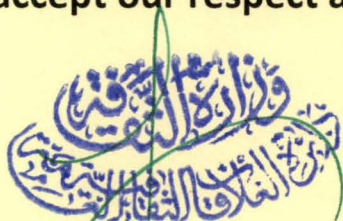 accept our respect a
وزارة الثقافة
العلاقات الثقافية